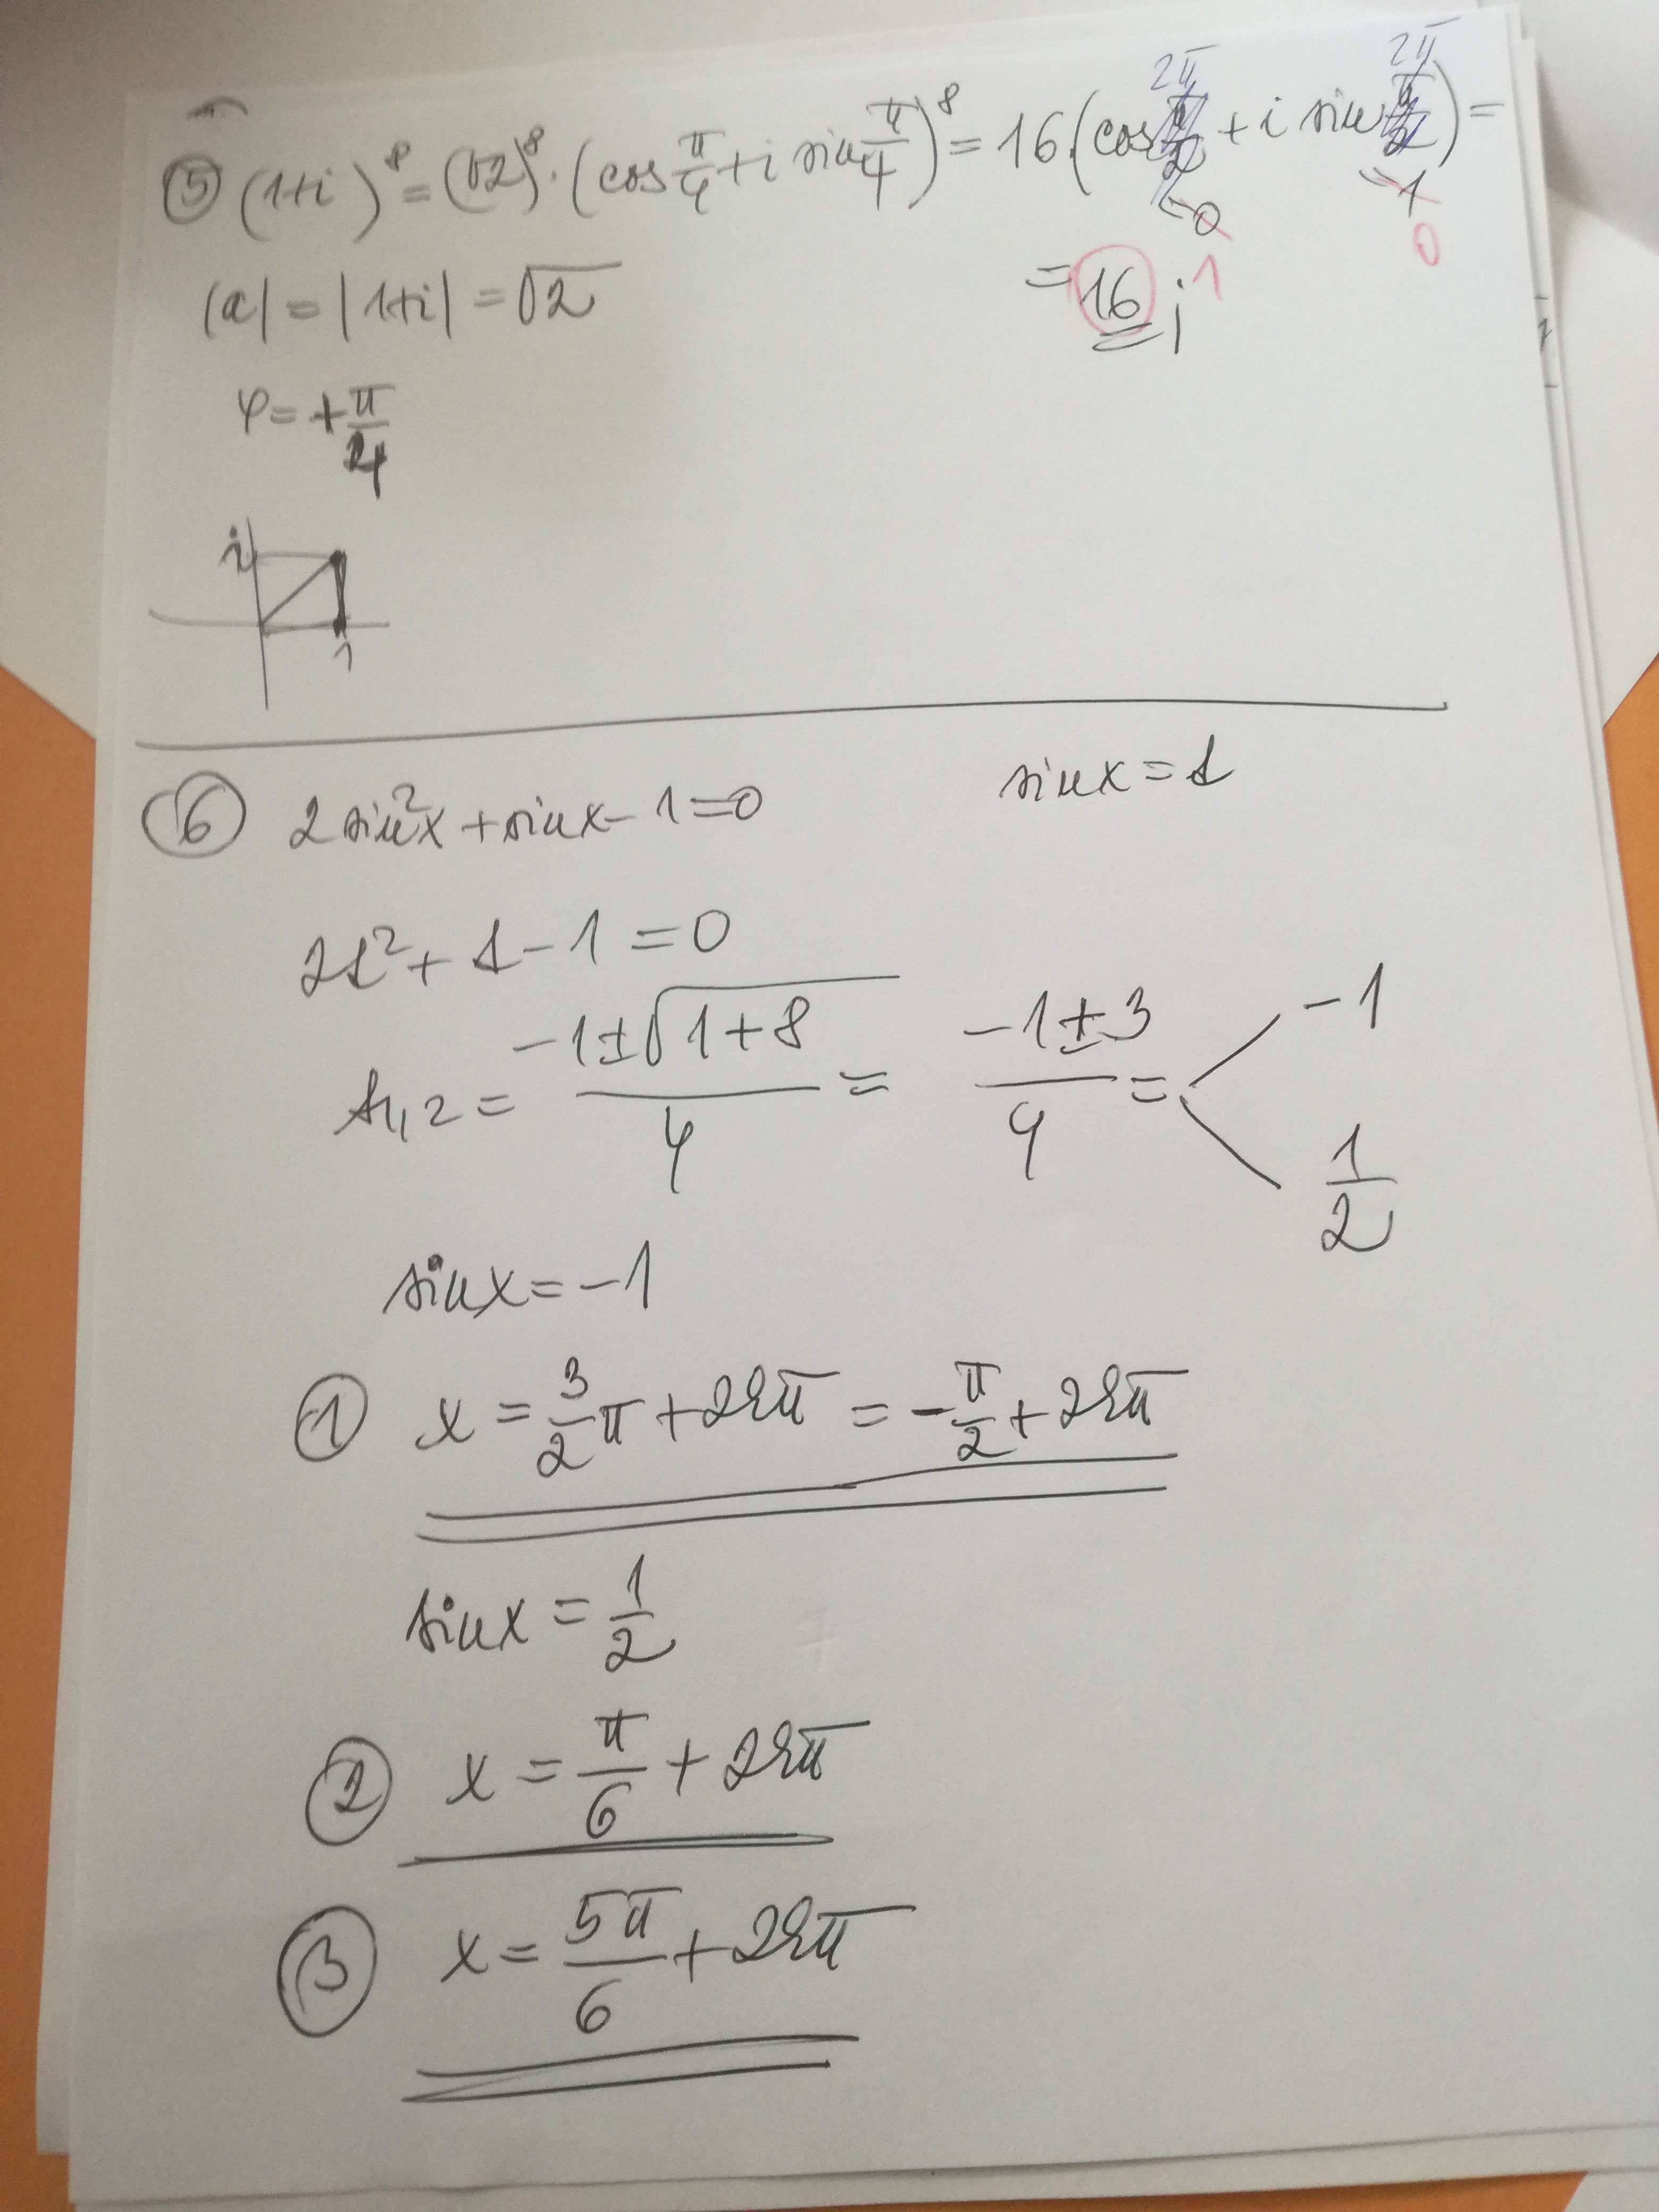 ⑤ (1+i)⁸ = (√2)⁸ · (cos π/4 + i sin π/4)⁸ = 16 · (cos 2π + i sin 2π) =
= 0 1 = 1 0
|a| = |1+i| = √2
= 16 i
φ = + π/4
i
1
⑥ 2 sin²x + sin x - 1 = 0
sin x = t
2t² + t - 1 = 0
t₁,₂ = (-1 ± √(1+8))/4 = (-1 ± 3)/4 = -1
1/2
sin x = -1
① x = 3/2 π + 2kπ = - π/2 + 2kπ
sin x = 1/2
② x = π/6 + 2kπ
③ x = 5π/6 + 2kπ